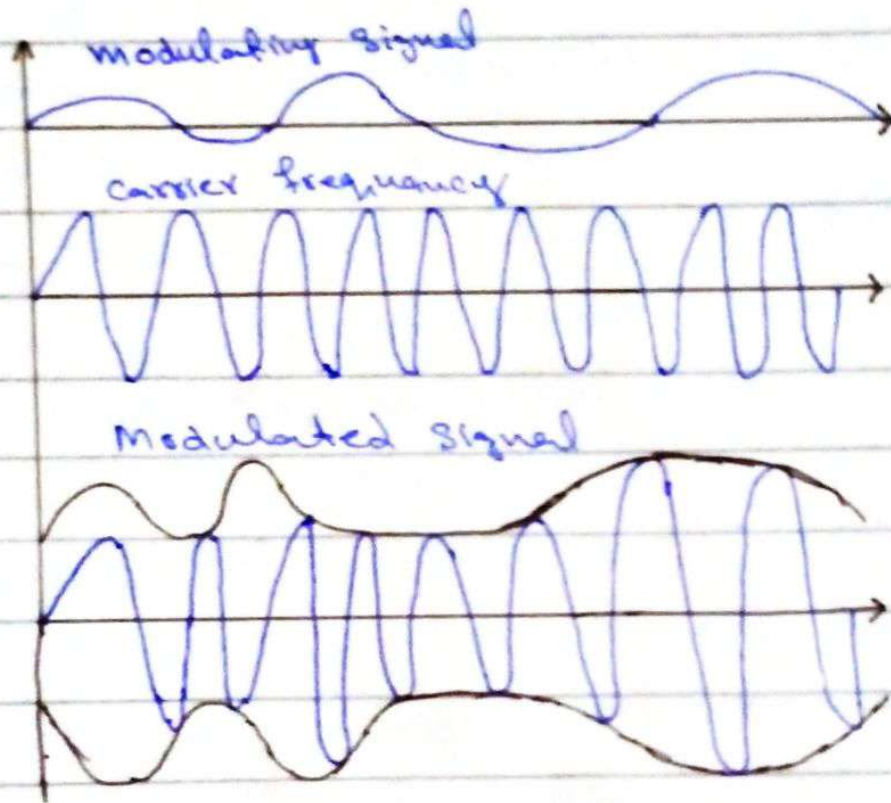 modulating signal
carrier frequency
Modulated signal